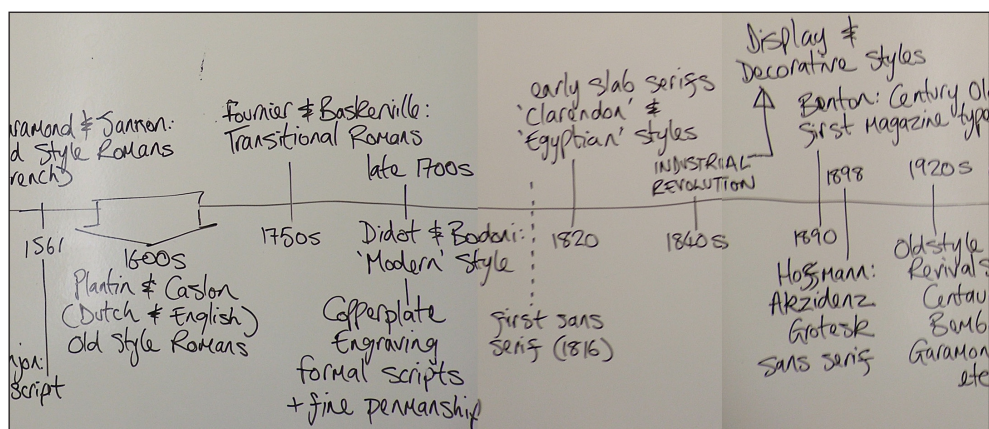 aramond & Jannon:
d Style Romans
rench)
1561
njon:
script
1600s
Plantin & Caslon
(Dutch & English)
Old Style Romans
Fournier & Baskerville:
Transitional Romans
1750s
late 1700s
Didot & Bodoni:
'Modern' Style
Copperplate
Engraving
formal scripts
+ fine penmanship
early slab serifs
'Clarendon' &
'Egyptian' styles
1820
first sans
serif (1816)
Display &
Decorative Styles
INDUSTRIAL
REVOLUTION
1840s
Benton: Century Ol
first Magazine typ
1890
1898
Hoffmann:
Akzidenz
Grotesk
sans serif
1920s
Oldstyle
Revivals
Centau
Bemb
Garamon
etc